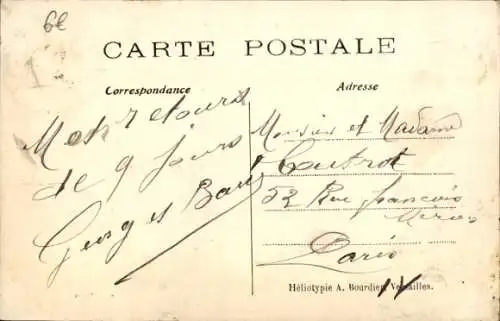 6€
CARTE POSTALE
Correspondance
Adresse
de 9 jours
Georges
Monsieur et Madame
Coutrot
52 Rue francois
Paris
Héliotypie A. Bourdier, Versailles.